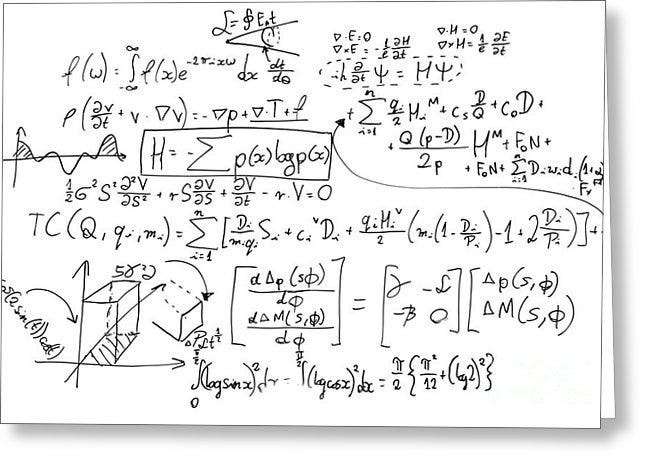 L = ∮ E₀ t
∇·E=0  ∇·H=0
∇×E = -1/c ∂H/∂t  ∇×H = 1/c ∂E/∂t
f(ω) = ∫_{-∞}^{∞} f(x) e^{-2πixω} dx  dt/dθ
iħ ∂/∂t Ψ = HΨ
ρ(∂v/∂t + v·∇v) = -∇p + ∇·T + f
+ ∑_{i=1}^{n} q_i/2 H_i^M + C_s D/Q + C_0 D +
H = -∑ p(x) log p(x)
+ Q(p-D)/2p H^M + F_0 N +
+ F_0 N + ∑_{i=1}^{n} D_i w_i d_i
1/2 σ² S² ∂²V/∂S² + rS ∂V/∂S + ∂V/∂t - r·V = 0
TC(Q, q_i, m_i) = ∑_{i=1}^{n} [D_i/(m_i q_i) S_i + c_i^v D_i + q_i H_i^v/2 (m_i(1 - D_i/P_i) - 1 + 2 D_i/P_i)] +
5r²2
[dΔp(s,ϕ)/dϕ
dΔM(s,ϕ)/dϕ] = [γ -L
-β 0] [Δp(s,ϕ)
ΔM(s,ϕ)]
∫_0^{π/2} (log sin x)² dx = ∫^{π/2} (log cos x)² dx = π/2 {π²/12 + (log 2)²}